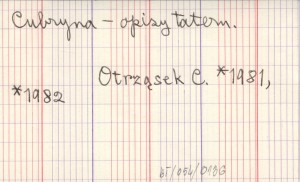 Cubryna - opisy tatern.
Otrząsek C. *1981,
*1982
bT/054/018G